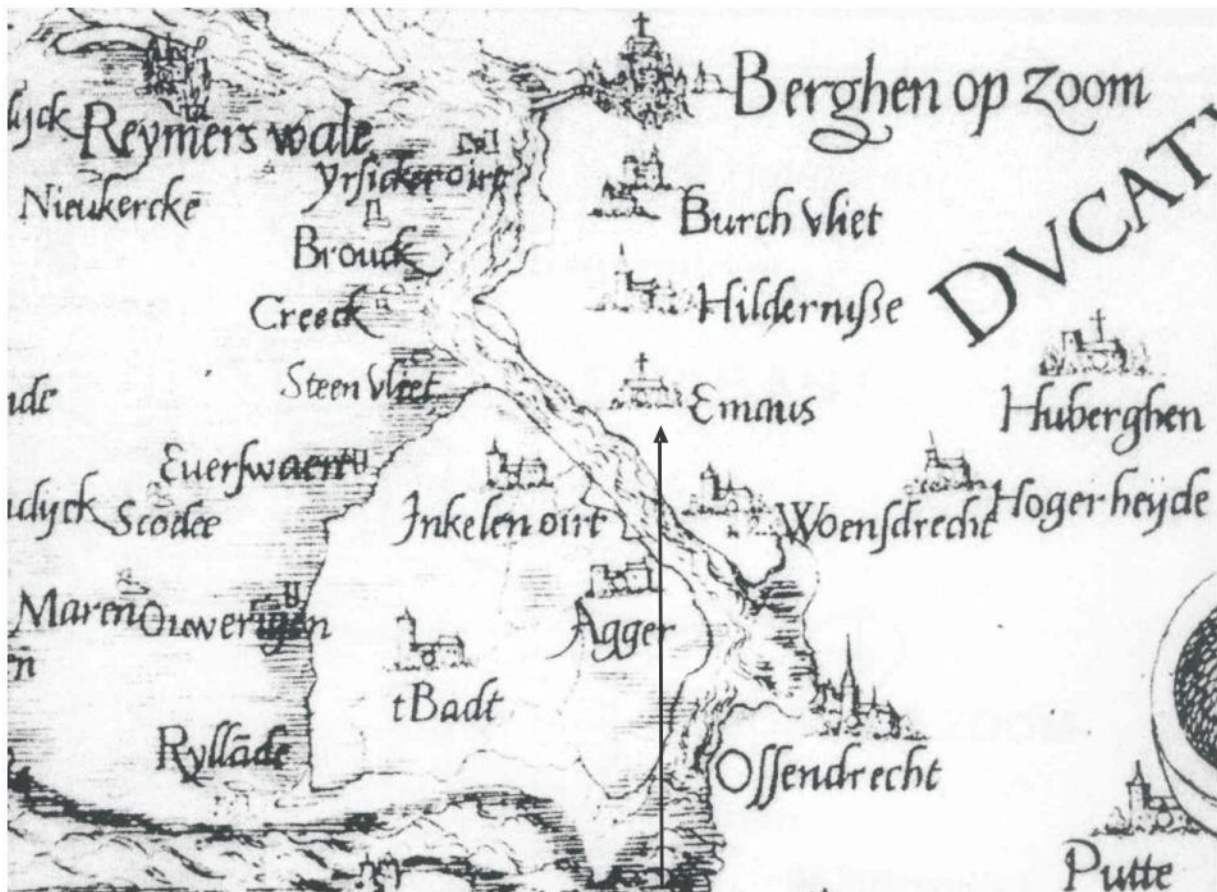 Berghen op Zoom
dijck Reymers wale
DVCAT
Nieukercke
Yrsickeroirt
Burch vliet
Brouck
Hildernuße
Creeck
Steen vleet
Emaus
Huberghen
Euerswaert
Scodee
Inkelenoirt
Woensdrecht
Hogerheyde
Maren
Ouwerigen
Agger
tBadt
Ryllāde
Ossendrecht
Putte